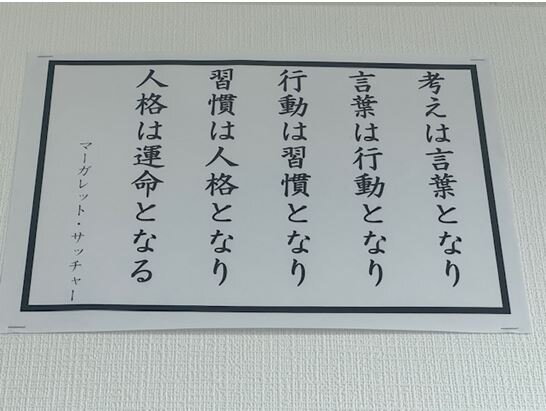 考えは言葉となり
言葉は行動となり
行動は習慣となり
習慣は人格となり
人格は運命となる
マーガレット・サッチャー